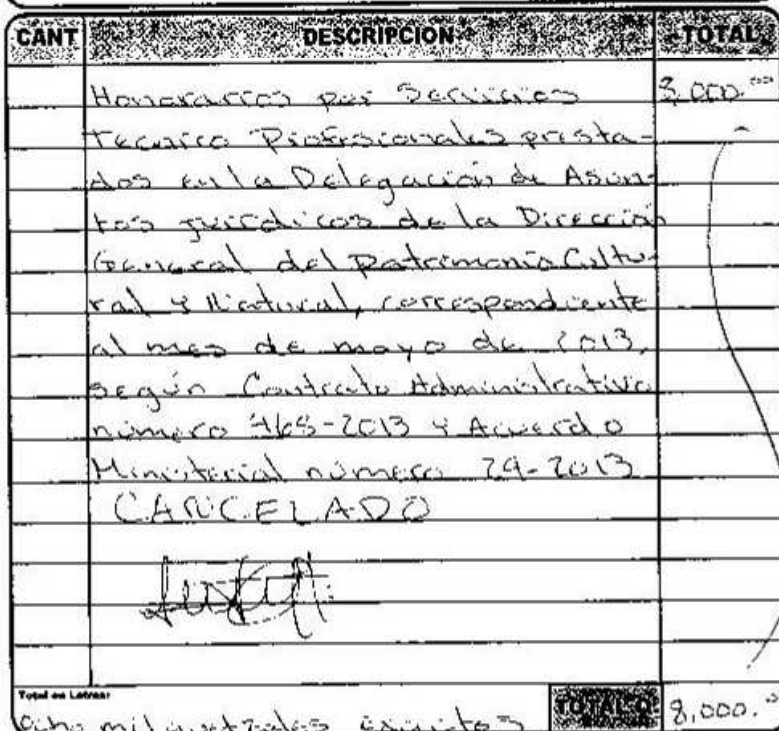 CANT DESCRIPCION TOTAL
Honorarios por Servicios 8,000.00
Tecnico Profesionales presta-
dos en la Delegación de Asun-
tos jurídicos de la Dirección
General del Patrimonio Cultu-
ral y Natural, correspondiente
al mes de mayo de 2013,
según Contrato Administrativo
número 465-2013 y Acuerdo
Ministerial número 29-2013
CANCELADO
Total en Letras:
ocho mil quetzales exactos TOTAL Q 8,000.00